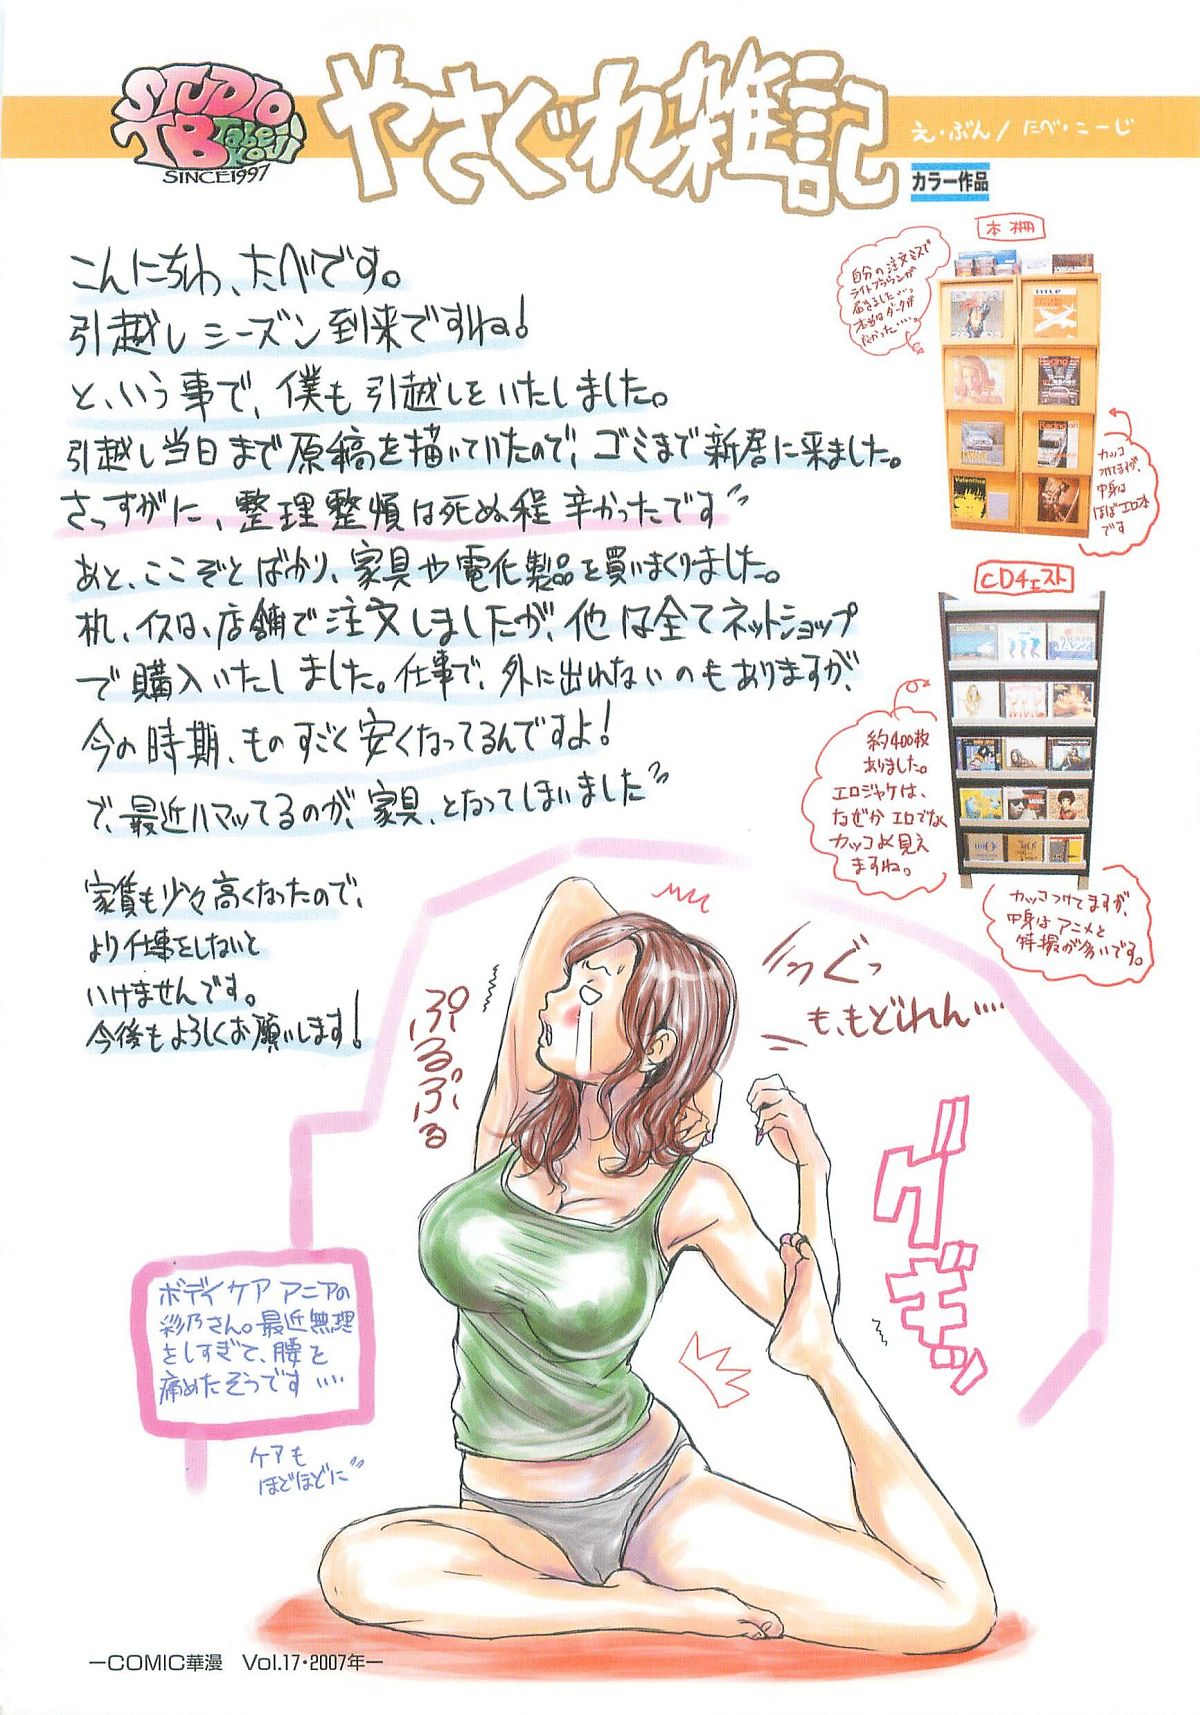 STUDIO
TB Tabe Koji
SINCE1997
やさぐれ雑記
え・ぶん/たべ・こーじ
カラー作品
こんにちわ、たべです。
引越しシーズン到来ですね!
と、いう事で、僕も引越しをいたしました。
引越し当日まで原稿を描いていたので、ゴミまで新居に来ました。
さっすがに、整理整頓は死ぬ程辛かったです
あと、ここぞとばかり、家具や電化製品を買いまくりました。
机、イスは、店舗で注文しましたが、他は全てネットショップ
で購入いたしました。仕事で、外に出れないのもありますが、
今の時期、ものすごく安くなってるんですよ!
で、最近ハマッてるのが、家具、となってしまいました
家賃も少々高くなったので、
より仕事をしないと
いけませんです。
今後もよろしくお願いします!
本棚
自分の注文ミスで
ライトブラウンが
届きました…
本当はダークが
良かった…
カッコ
つけてますが、
中身は
ほぼエロ本
です
CDチェスト
約400枚
ありました。
エロジャケは、
なぜかエロでなく
カッコよく見え
ますね。
カッコつけてますが、
中身はアニメと
特撮が多いです。
ぷるぷる
っっぐっ
も、もどれん・・・・
グギッ
ボディケア アニアの
彩乃さん。最近無理
をしすぎて、腰を
痛めたそうです・・・・
ケアも
ほどほどに
ーCOMIC華漫 Vol.17・2007年ー